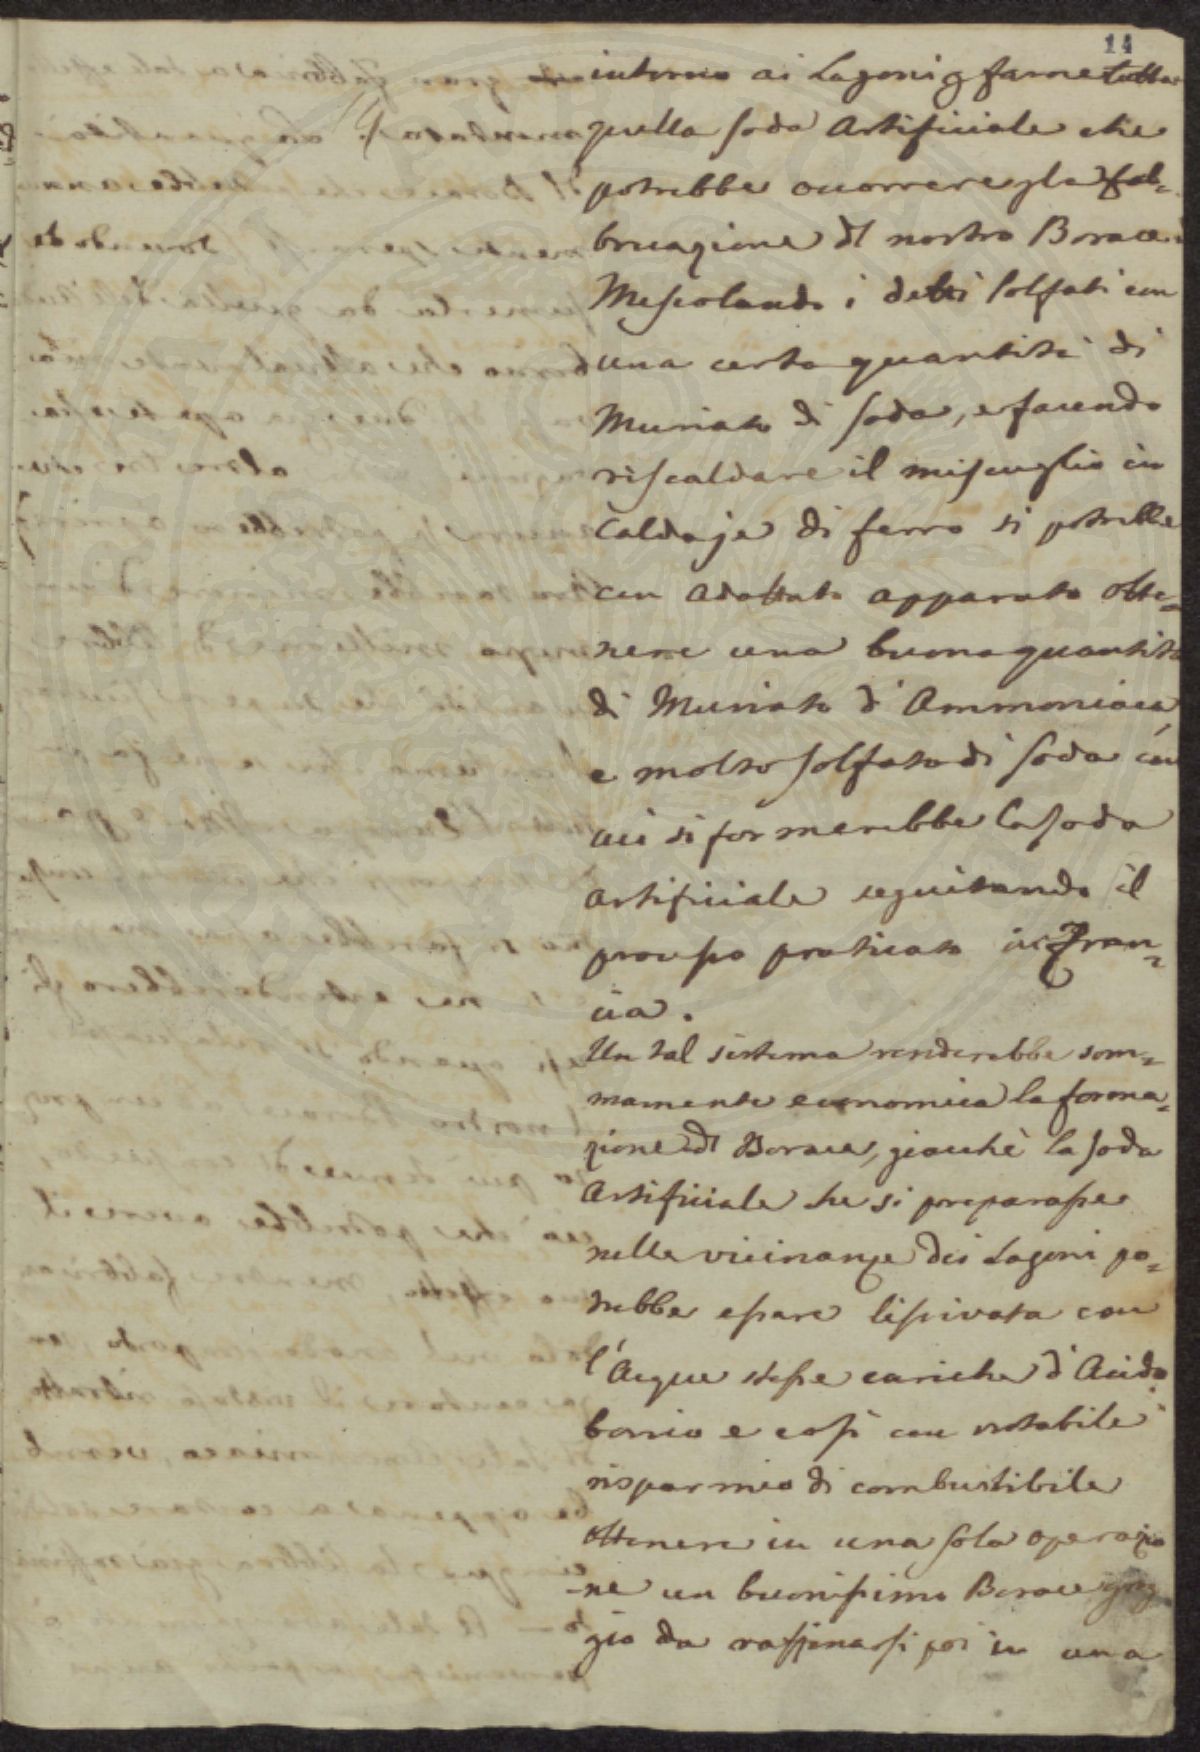 14
intorno ai Lagoni p farne tutta
quella soda Artificiale che
potrebbe occorrere p la fab=
bricazione dl nostro Borace.
Mescolando i detti solfati con
una certa quantità di
Muriato di soda, e facendo
riscaldare il miscuglio in
Caldaje di ferro si potrebbe
con adattato apparato otte=
nere una buona quantità
di Muriato d'Ammoniaca
e molto solfato di soda con
cui si formerebbe la soda
artificiale seguitando il
processo praticato in Fran=
cia.
Un tal sistema renderebbe som=
mamente economica la forma=
zione dl Borace, giacchè la soda
Artificiale che si preparasse
nelle vicinanze dei Lagoni po=
trebbe essere lisciviata con
l'Acque stesse cariche d'Acido
borico e così con notabile
risparmio di combustibile
ottenere in una sola operazio
=ne un buonissimo Borace greg
gio da raffinarsi poi in una